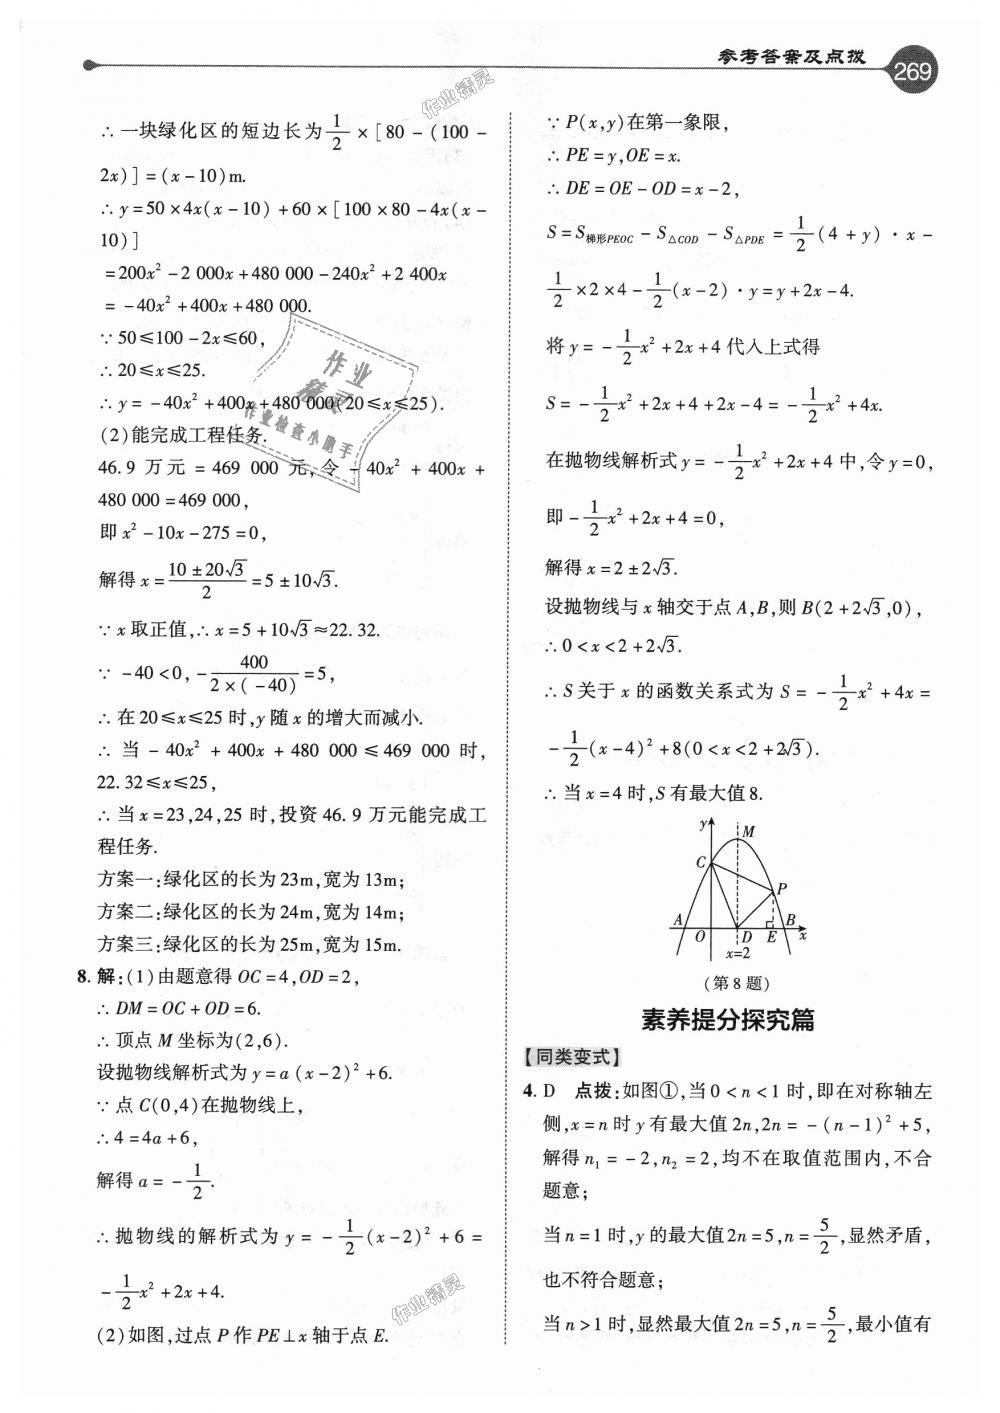 参考答案及点拨
269
∴一块绿化区的短边长为1/2×[80-(100-
2x)]=(x-10)m.
∴y=50×4x(x-10)+60×[100×80-4x(x-
10)]
=200x²-2 000x+480 000-240x²+2 400x
=-40x²+400x+480 000.
∵50≤100-2x≤60,
∴20≤x≤25.
∴y=-40x²+400x+480 000(20≤x≤25).
(2)能完成工程任务.
46.9 万元=469 000 元,令-40x²+400x+
480 000=469 000,
即x²-10x-275=0,
解得x=(10±20√3)/2=5±10√3.
∵x取正值,∴x=5+10√3≈22.32.
∵-40<0,-400/(2×(-40))=5,
∴在20≤x≤25时,y随x的增大而减小.
∴当-40x²+400x+480 000≤469 000时,
22.32≤x≤25,
∴当x=23,24,25时,投资46.9万元能完成工
程任务.
方案一:绿化区的长为23m,宽为13m;
方案二:绿化区的长为24m,宽为14m;
方案三:绿化区的长为25m,宽为15m.
8.解:(1)由题意得OC=4,OD=2,
∴DM=OC+OD=6.
∴顶点M坐标为(2,6).
设抛物线解析式为y=a(x-2)²+6.
∵点C(0,4)在抛物线上,
∴4=4a+6,
解得a=-1/2.
∴抛物线的解析式为y=-1/2(x-2)²+6=
-1/2x²+2x+4.
(2)如图,过点P作PE⊥x轴于点E.
∵P(x,y)在第一象限,
∴PE=y,OE=x.
∴DE=OE-OD=x-2,
S=S梯形PEOC-S△COD-S△PDE=1/2(4+y)·x-
1/2×2×4-1/2(x-2)·y=y+2x-4.
将y=-1/2x²+2x+4代入上式得
S=-1/2x²+2x+4+2x-4=-1/2x²+4x.
在抛物线解析式y=-1/2x²+2x+4中,令y=0,
即-1/2x²+2x+4=0,
解得x=2±2√3.
设抛物线与x轴交于点A,B,则B(2+2√3,0),
∴0<x<2+2√3.
∴S关于x的函数关系式为S=-1/2x²+4x=
-1/2(x-4)²+8(0<x<2+2√3).
∴当x=4时,S有最大值8.
y
M
C
P
A
O
D
E
B
x
x=2
(第8题)
素养提分探究篇
【同类变式】
4. D 点拨:如图①,当0<n<1时,即在对称轴左
侧,x=n时y有最大值2n,2n=-(n-1)²+5,
解得n₁=-2,n₂=2,均不在取值范围内,不合
题意;
当n=1时,y的最大值2n=5,n=5/2,显然矛盾,
也不符合题意;
当n>1时,显然最大值2n=5,n=5/2,最小值有
作业精灵
作业
精灵
作业检查小助手
作业精灵